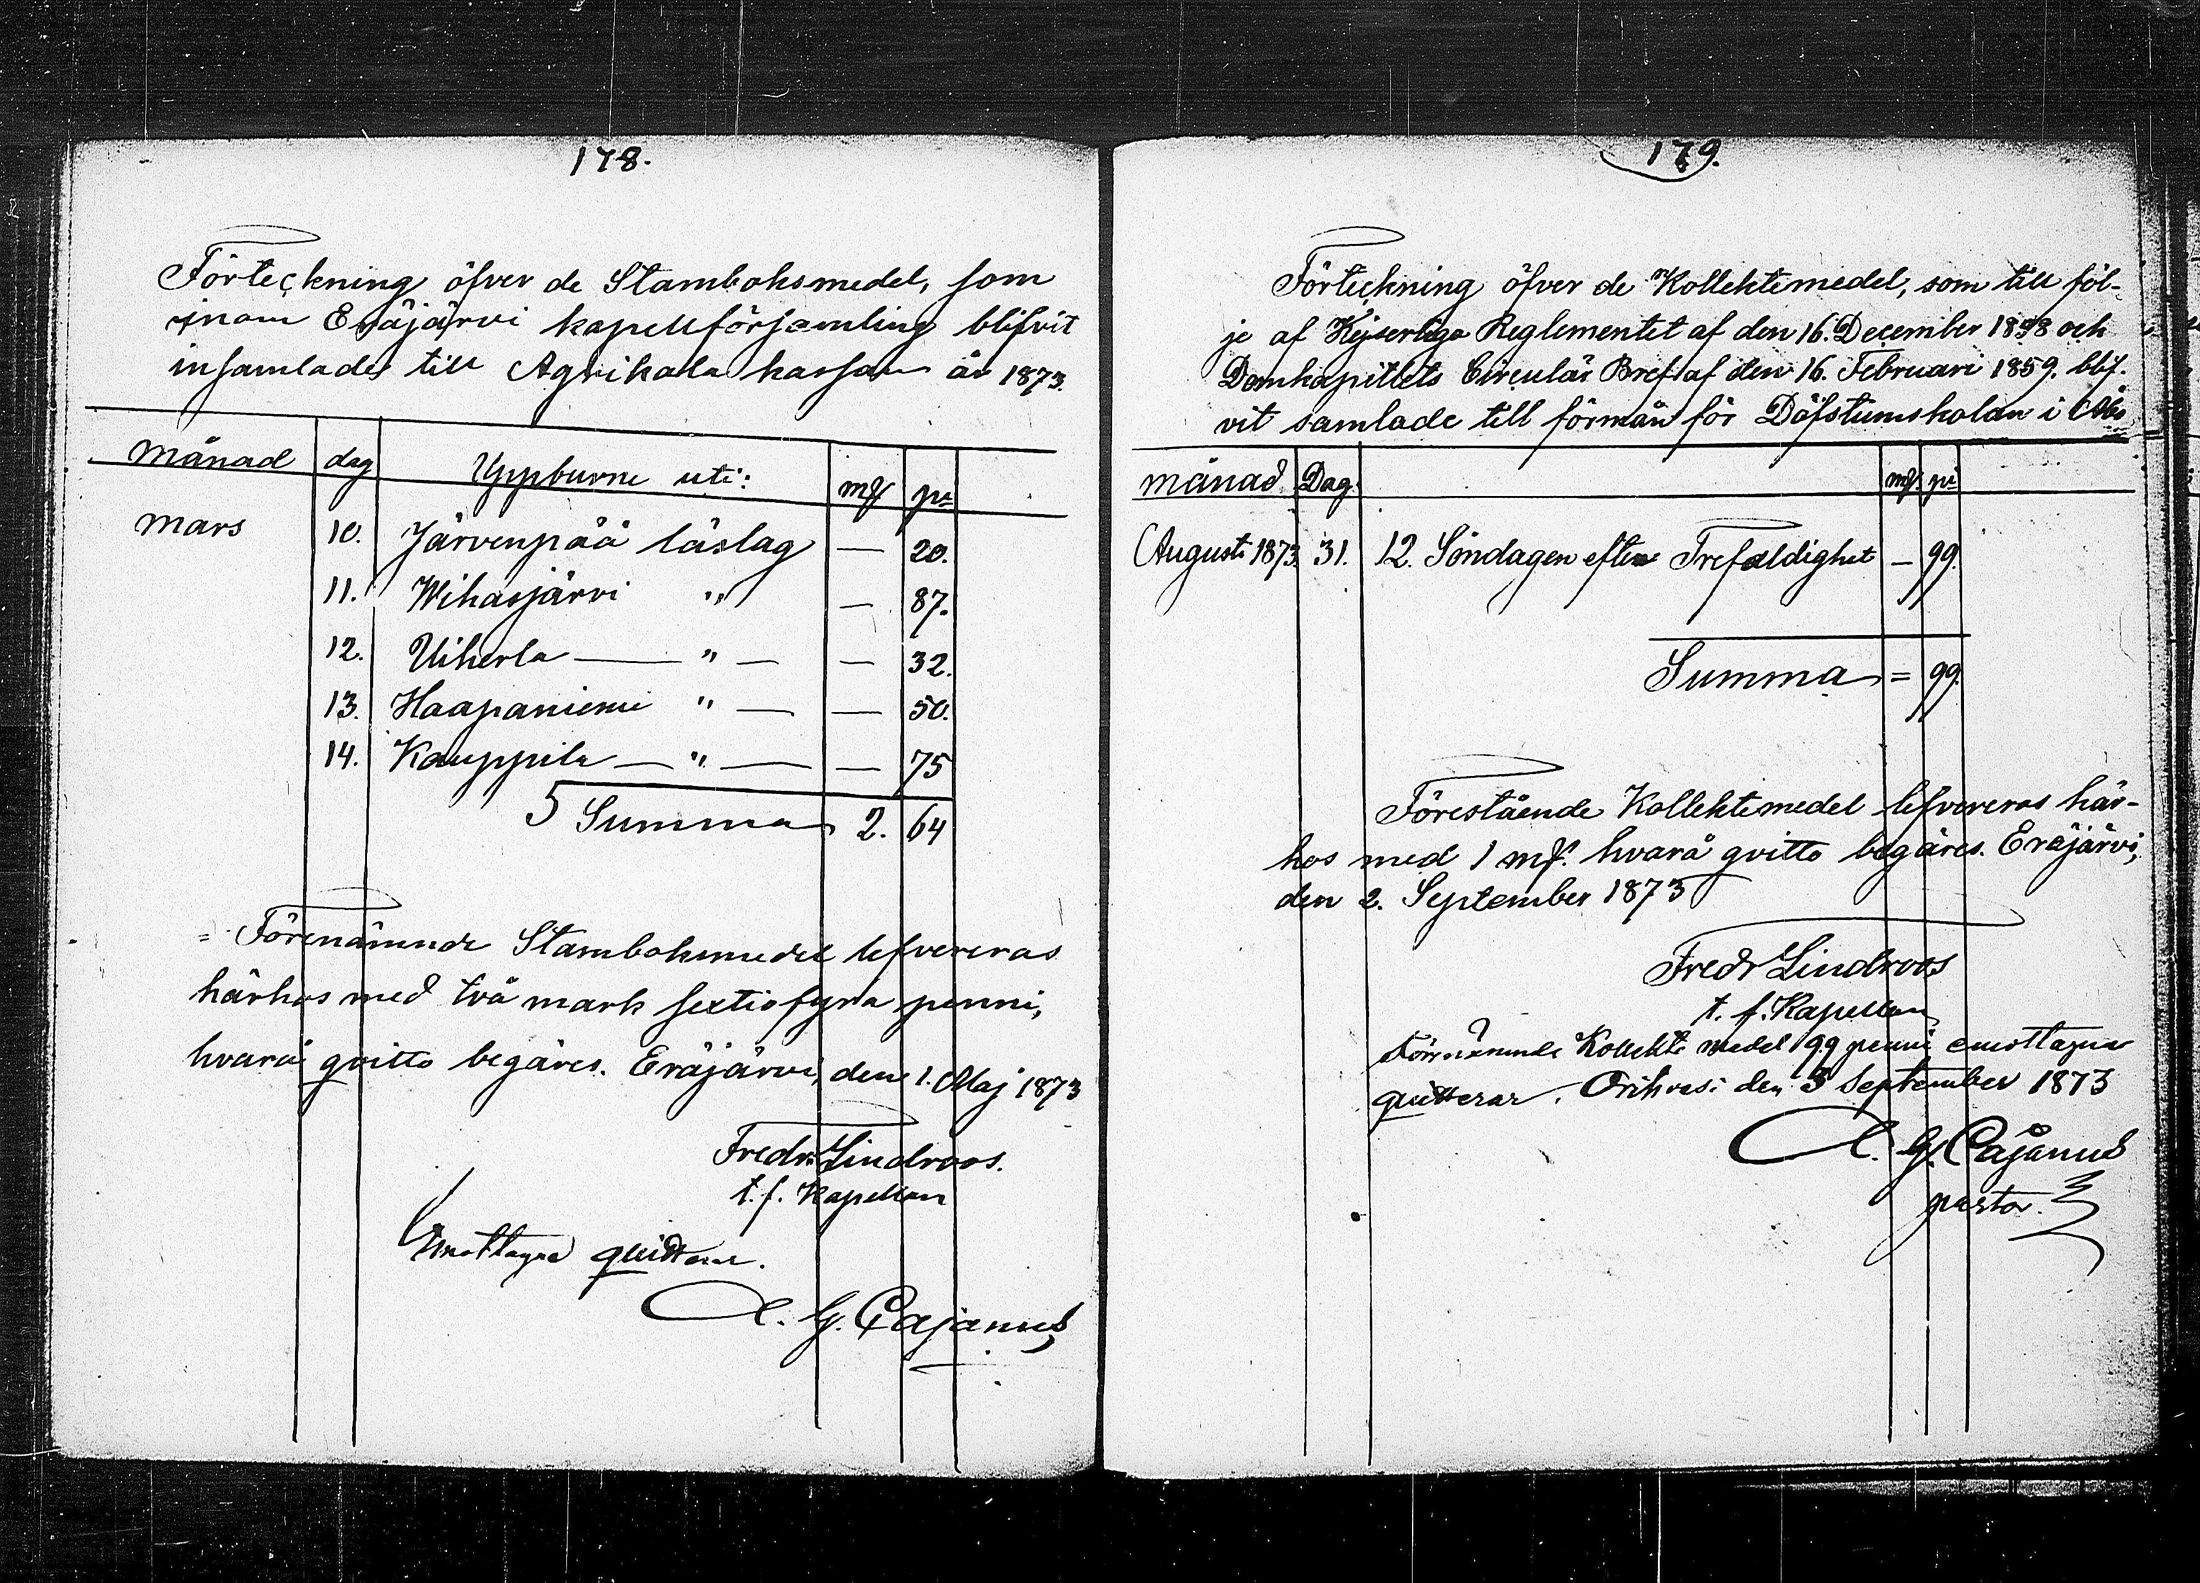 178.
Förteckning öfver de Stamboksmedel, som
inom Eräjärvi kapellförsamling blifvit
insamlade till Agrikola kassan år 1873.
Månad dag Uppburne uti: mk pi
Mars 10. Järvenpää läslag — 20.
11. Wihasjärvi " — 87.
12. Uiherla — " — — 32.
13. Haapaniemi " — — 50.
14. Kauppila — " — — 75
Summa 2. 64
Förenämnde Stamboksmedel lefvereras
härhos med två mark sextiofyra penni,
hvarå qvitto begäres. Eräjärvi, den 1. Maj 1873
Fredr Lindroos.
t.f. Kapellan
Emottagne quitteras.
A. G. Cajanus
179.
Förteckning öfver de Kollektemedel, som till föl-
je af Kejserliga Reglementet af den 16. December 1858 och
Domkapitlets Circulär Bref af den 16. Februari 1859. blif-
vit samlade till förmån för Döfstumskolan i Åbo
Månad Dag. mk pi
Augusti 1873. 31. 12. Söndagen efter Trefaldighet — 99.
Summa = 99.
Förestående Kollektemedel lefvereras här-
hos med 1 mk. hvarå qvitto begäres. Eräjärvi,
den 2. September 1873
Fredr Lindroos
t. f. Kapellan
Förenämnde Kollekte medel 99 penni emottagne
quitterar. Orihvesi den 3 September 1873
A. G. Cajanus
pastor.